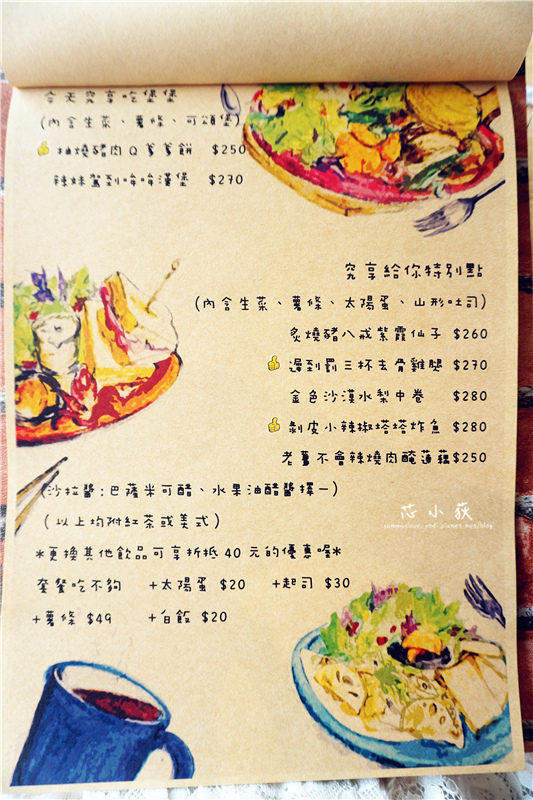 今天究享吃堡堡
(內含生菜、薯條、可頌堡)
抽燒豬肉Q爹爹餅 $250
辣妹駕到哞哞漢堡 $270
究享給你特別點
(內含生菜、薯條、太陽蛋、山形吐司)
炙燒豬八戒紫霞仙子 $260
遲到罰三杯去骨雞腿 $270
金色沙漠水梨中卷 $280
剝皮小辣椒塔塔炸魚 $280
老薑不會辣燒肉醃蓮藕 $250
(沙拉醬:巴薩米可醋、水果油醋醬擇一)
(以上均附紅茶或美式)
*更換其他飲品可享折抵40元的優惠喔*
套餐吃不夠 +太陽蛋 $20 +起司 $30
+薯條 $49 +白飯 $20
芯小荻